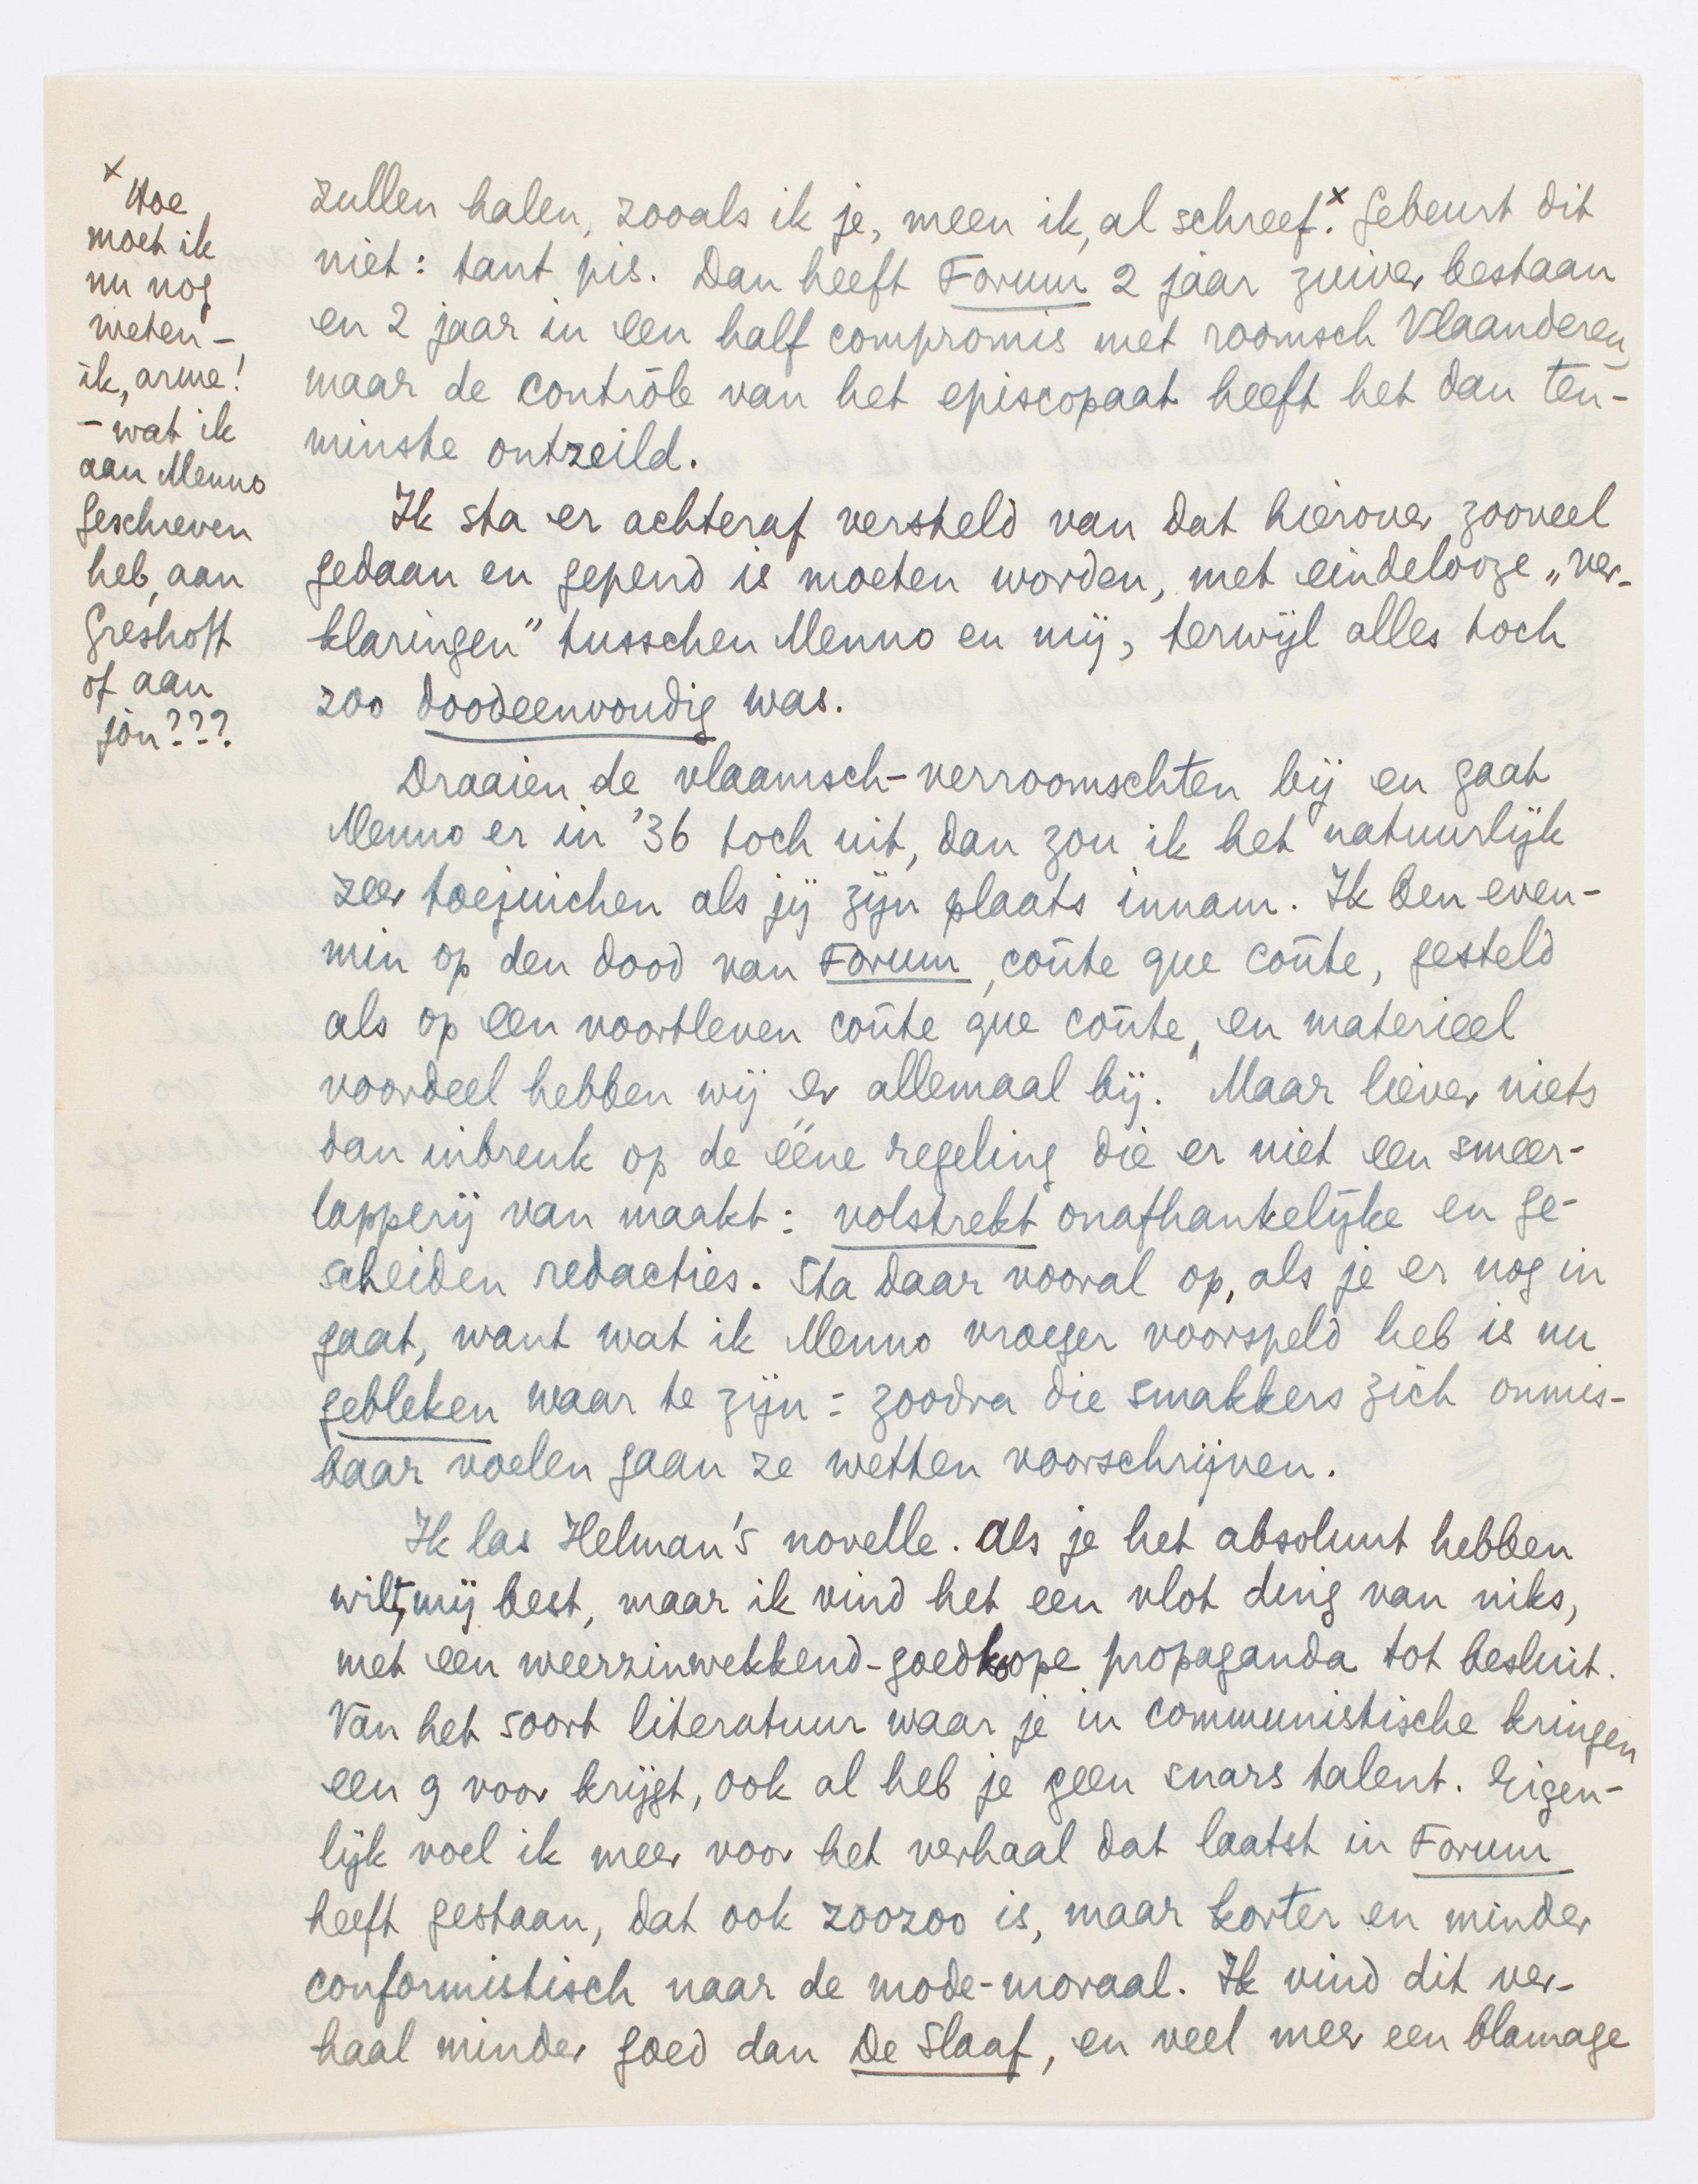 x Hoe
moet ik
nu nog
weten –
ik, arme!
– wat ik
aan Menno
geschreven
heb, aan
Greshoff
of aan
jòu???
zullen halen, zooals ik je, meen ik, al schreef.x Gebeurt dit
niet: tant pis. Dan heeft Forum 2 jaar zuiver bestaan
en 2 jaar in een half compromis met roomsch Vlaanderen,
maar de contrôle van het episcopaat heeft het dan ten-
minste ontzeild.
Ik sta er achteraf versteld van dat hierover zooveel
gedaan en gepend is moeten worden, met eindelooze „ver-
klaringen” tusschen Menno en mij, terwijl alles toch
zoo doodeenvoudig was.
Draaien de vlaamsch-verroomschten bij en gaat
Menno er in ’36 toch uit, dan zou ik het natuurlijk
zeer toejuichen als jij zijn plaats innam. Ik ben even-
min op den dood van Forum, coûte que coûte, gesteld
als op een voortleven coûte que coûte, en materieel
voordeel hebben wij er allemaal bij. Maar liever niets
dan inbreuk op de ééne regeling die er niet een smeer-
lapperij van maakt: volstrekt onafhankelijke en ge-
scheiden redacties. Sta daar vooral op, als je er nog in
gaat, want wat ik Menno vroeger voorspeld heb is nu
gebleken waar te zijn: zoodra die smakkers zich onmis-
baar voelen gaan ze wetten voorschrijven.
Ik las Helman’s novelle. Als je het absoluut hebben
wilt, mij best, maar ik vind het een vlot ding van niks,
met een weerzinwekkend-goedkoope propaganda tot besluit.
Van het soort literatuur waar je in communistische kringen
een 9 voor krijgt, ook al heb je geen snars talent. Eigen-
lijk voel ik meer voor het verhaal dat laatst in Forum
heeft gestaan, dat ook zoozoo is, maar korter en minder
conformistisch naar de mode-moraal. Ik vind dit ver-
haal minder goed dan De Slaaf, en veel meer een blamage